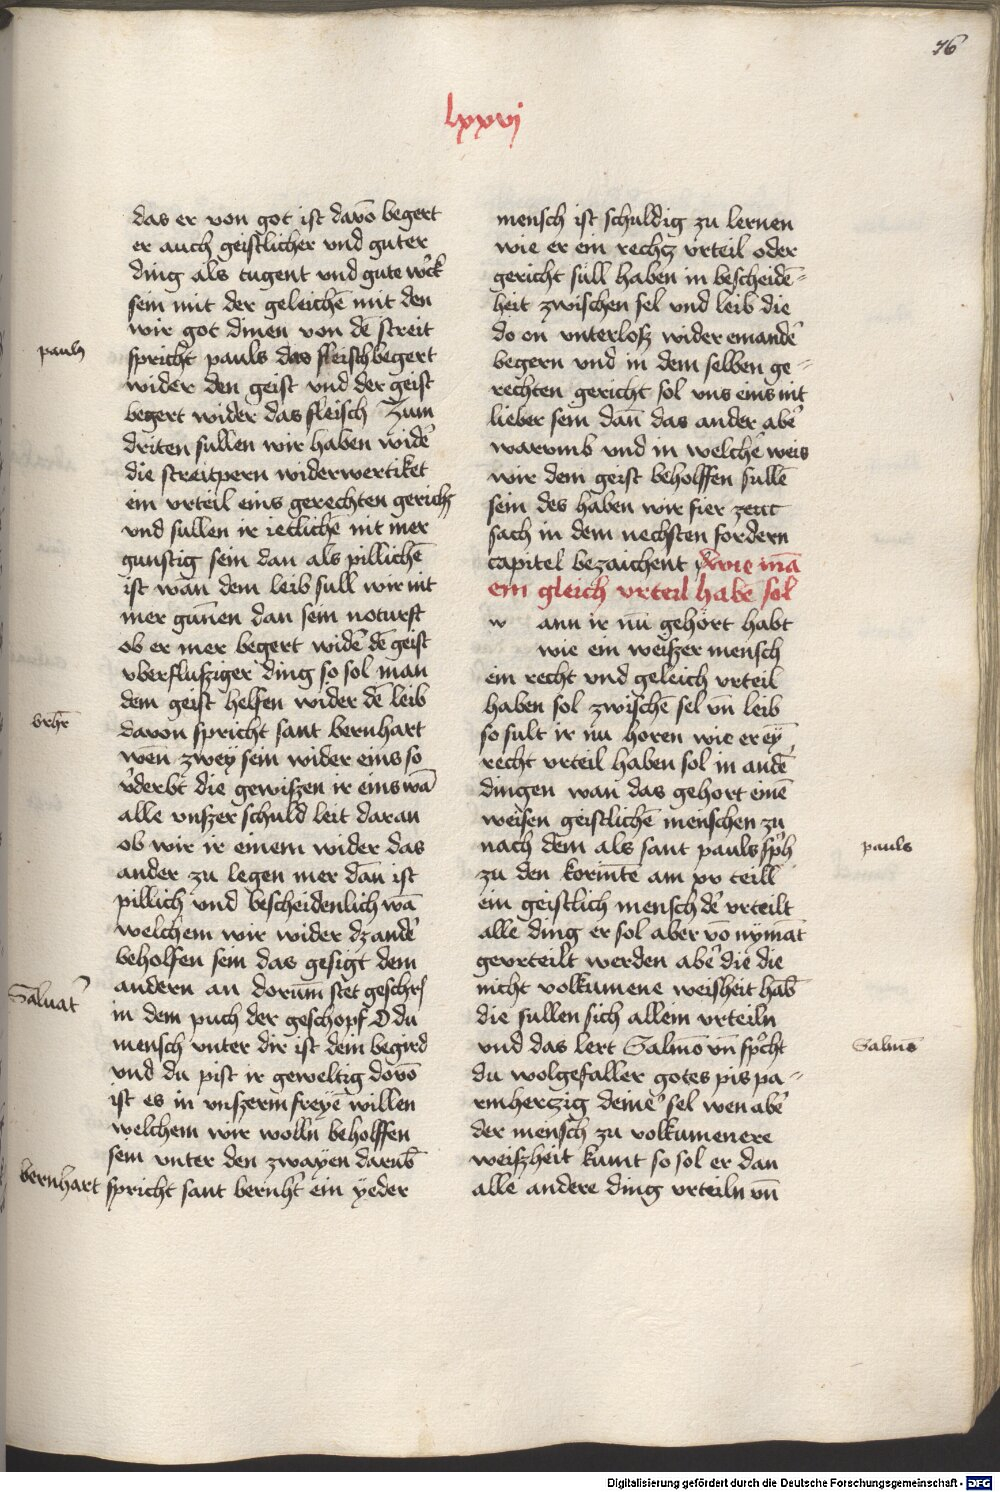 76
lxxvi
das er von got ist davō begert
er auch geistlicher vnd guter
ding als tugent vnd gute w̉ck
sein mit der geleichē mit den
wir got dinen von dē streit
pauls
spricht pauls das fleisch begert
wider den geist vnd der geist
begert wider das fleisch Zum
driten sullen wir haben widẻ
die streitpern widerwertiket
ein vrteil eins gerechten gerichcz
vnd sullen ir ietliche nit mer
gunstig sein dan als pillichē
ist wan dem leib sull wir nit
mer gūnen dan sein noturft
ob er mer begert widē dē geist
vberflusziger ding so sol man
dem geist helfen wider dē leib
davon spricht sant bernhart
wen zwey sein wider eins so
v̉derbt die gewiszen ir eins wā
alle vnszer schuld leit daran
ob wir ir einem wider das
ander zu legen mer dan ist
pillich vnd bescheidenlich wā
welchem wir wider dz andẻ
beholfen sein das gesigt dem
Saluat̉
andern an dorum̄ stet geschrͥ
in dem puch der geschopf O du
mensch vnter dir ist dein begird
vnd du pist ir geweltig dovō
ist es in vnszerm freyē willen
welchem wir wolln beholffen
sein vnter den zwayen darub̄
bernhart
spricht sant bernht̉ ein yeder
mensch ist schuldig zu lernen
wie er ein rechcz vrteil oder
gericht sull haben in bescheidē-
heit zwischen sel vnd leib die
do on vnterlosz wider einandẻ
begern vnd in dem selben ge-
rechten gericht sol vns eins nit
lieber sein dan̄ das ander abẻ
warumb vnd in welchē weis
wir dem geist beholffen sullē
sein des haben wir fier
sach in dem nechsten fordern
capitel bezaichent wie mā
ein gleich vrteil habē sol
w ann ir nu gehort habt
wie ein weiszer mensch
ein recht vnd geleich vrteil
haben sol zwischē sel vn̄ leib
so sult ir nu horen wie er eȳ
recht vrteil haben sol in andẻ
dingen wan das gehort einē
weisen geistlichē menschen zu
pauls
nach dem als sant pauls sp̉ch
zu den korintē am xv teill
ein geistlich mensch dẻ vrteilt
alle ding er sol aber vō nymāt
gevrteilt werden abẻ die die
nicht volkumene weisheit hab̄
die sullen sich allein vrteiln
Salmō
vnd das lert Salmō vn̄ sp̉cht
du wolgefaller gotes pis pa-
rmhertzig deinẻ sel wen abẻ
der mensch zu volkumenere
weiszheit kumt so sol er dan
alle andere ding vrteiln vn̄
Digitalisierung gefördert durch die Deutsche Forschungsgemeinschaft - DFG